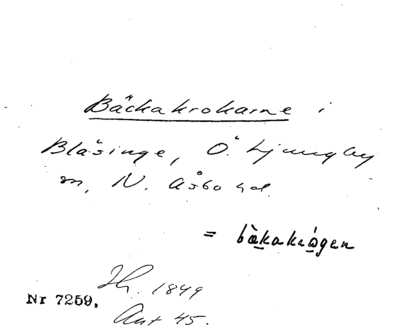 Bäckakrokarne i
Blåsinge, Ö. Ljungby
sn, N. Åsbo hd.
= bàkakrógen
Ih. 1849
Nr 7259, Ant 45.